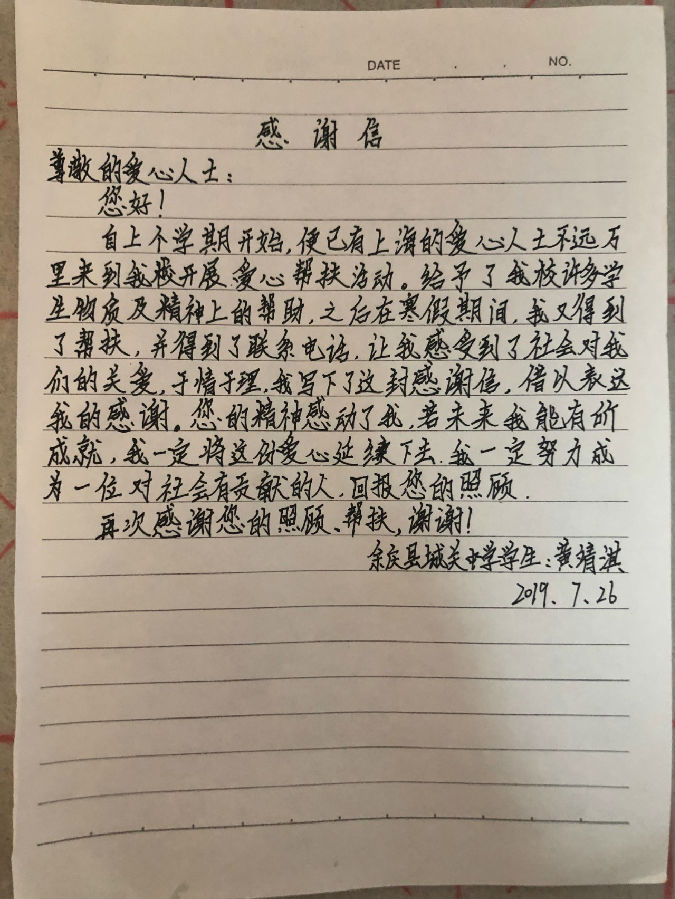 DATE . . NO.
感谢信
尊敬的爱心人士：
您好！
自上个学期开始，便已有上海的爱心人士不远万
里来到我校开展爱心帮扶活动。给予了我校许多学
生物质及精神上的帮助，之后在寒假期间，我又得到
了帮扶，并得到了联系电话，让我感受到了社会对我
们的关爱，于情于理，我写下了这封感谢信，借以表达
我的感谢。您的精神感动了我，若未来我能有所
成就，我一定将这份爱心延续下去，我一定努力成
为一位对社会有贡献的人，回报您的照顾．
再次感谢您的照顾、帮扶，谢谢！
余庆县城关中学学生：黄靖淇
2019、7、26